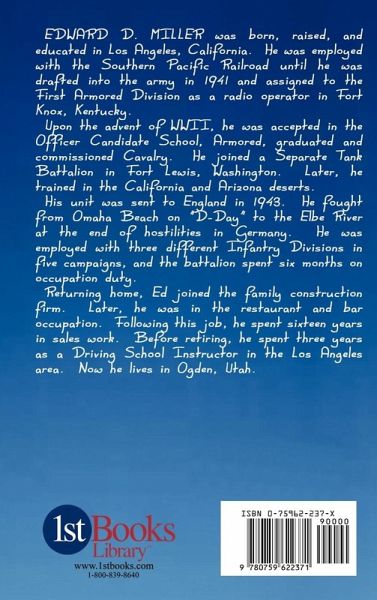 EDWARD D. MILLER was born, raised, and
educated in Los Angeles, California. He was employed
with the Southern Pacific Railroad until he was
drafted into the army in 1941 and assigned to the
First Armored Division as a radio operator in Fort
Knox, Kentucky.
Upon the advent of WWII, he was accepted in the
Officer Candidate School, Armored, graduated and
commissioned Cavalry. He joined a Separate Tank
Battalion in Fort Lewis, Washington. Later, he
trained in the California and Arizona deserts.
His unit was sent to England in 1943. He fought
from Omaha Beach on "D-Day" to the Elbe River
at the end of hostilities in Germany. He was
employed with three different Infantry Divisions in
five campaigns, and the battalion spent six months on
occupation duty.
Returning home, Ed joined the family construction
firm. Later, he was in the restaurant and bar
occupation. Following this job, he spent sixteen years
in sales work. Before retiring, he spent three years
as a Driving School Instructor in the Los Angeles
area. Now he lives in Ogden, Utah.
1st Books
Library™
www.1stbooks.com
1-800-839-8640
ISBN 0-75962-237-X
90000
9 780759 622371